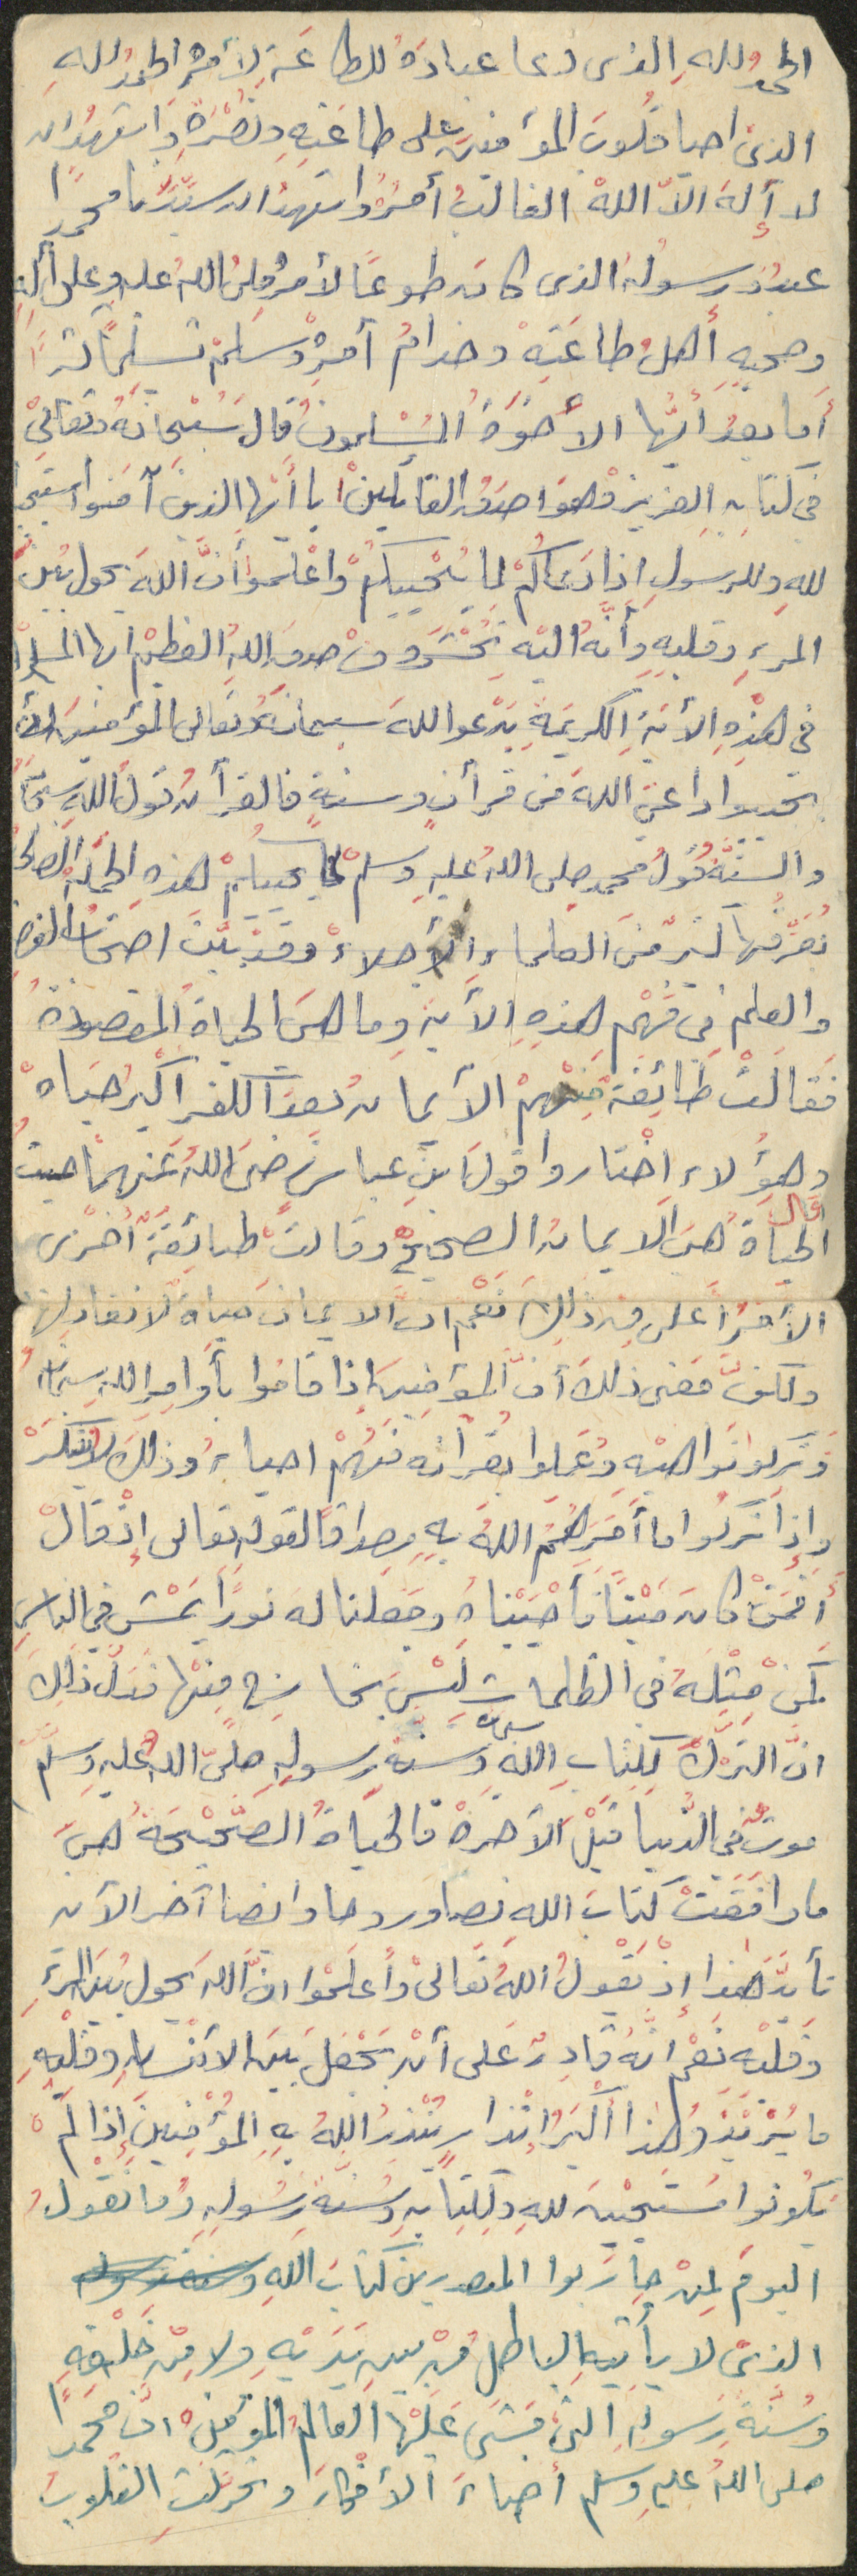 الحمد لله الذى دعا عباده للطاعة لأمره الحمد لله
الذى احيا قلوب المؤمنين على طاعته ونصره واشهد ان
لا إله الا الله الغالب أمره واشهد ان سيدنا محمدا
عبده ورسوله الذى كان طوعا لأمره صلى الله عليه وعلى أله
وصحبه أهل طاعته وخدام أمره وسلم تسليما كثيرا
أما بعد أيها الأخوة المسلمون قال سبحانه وتعالى
فى كتابه العزيز وهو اصدق القائلين يا أيها الذين آمنوا استجيبوا
لله وللرسول اذا دعاكم لما يحييكم واعلموا أن الله يحول بين
المرء وقلبه وأنه اليه تحشرون صدق الله العظيم أيها المسلمون
فى هذه الأية الكريمة يدعوا الله سبحانه وتعالى المؤمنين أن
يجيبوا داعى الله من قرأن وسنة فالقرأن قول الله سبحانه
والسنة قول محمد صلى الله عليه وسلم لما يحييكم هذه الجملة
يعرفها كثير من العلماء الأجلاء وقد بين اصحاب
والعلم فى فهم هذه الأية وما هى الحياة المقصودة
فقالت طائفة منهم الأيمان بعد الكفر اكبر حياه
وهؤلاء اختاروا قول ابن عباس رضى الله عنهما حيث
قال
الحياة هى الايمان الصحيح وقالت طائفة أخرى
الأمر أعلى من ذلك نعم ان الايمان حياة لا نعادلها
ولكن معنى ذلك أن المؤمنين اذا قاموا بأوامر الله سبحانه
وتركوا نواهيه وعملوا بقرأنه فهم احياء وذلك لا ينكر
وإذا تركوا ما أمرهم الله به مصداقا لقوله تعالى إذ قال
أفمن كان ميتا فأحييناه وجعلنا له نورا يمشى فى الناس
كمن مثله فى الظلمات ليس بخارج منها فدل ذلك
ان الترك لكتاب الله وسنة رسوله صلى الله عليه وسلم
موت فى الدنيا قبل الأخرة فالحياة الصحيحة هى
ما وافقت كتاب الله نصا وروحا وايضا آخر الآن
تأيد هذا إذ يقول الله تعالى وأعلموا ان الله يحول بين المرء
وقلبه نعم انه قادر على أن يجعل بين الأنسان وقلبه
ما يريد وهذا أكبر إنذار ينذر الله به المؤمنين إذا لم
يكونوا مستجيبين لله ولكتابه وسنة رسوله وما نقول
اليوم لمن حاربوا المصدرين كتاب الله
الذى لا يأتيه الباطل من بين يديه ولا من خلفه
وسنة رسوله التى مشى عليها العالم المؤمن ان محمدا
صلى الله عليه وسلم أحياء الأفكار وتحركت القلوب